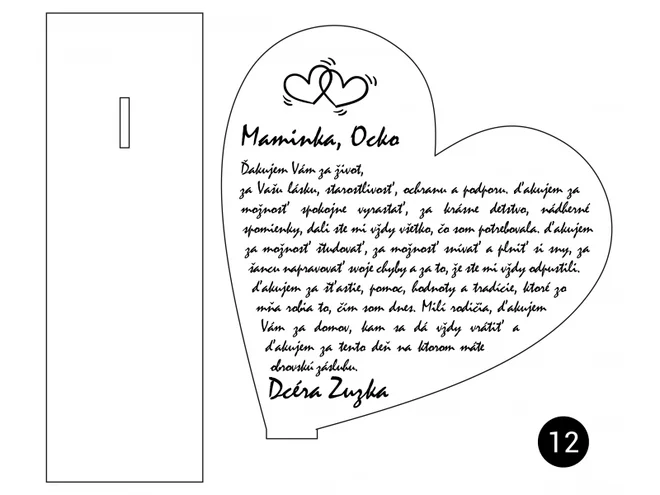 Maminka, Ocko
Ďakujem Vám za život,
za Vašu lásku, starostlivosť, ochranu a podporu. ďakujem za
možnosť spokojne vyrastať, za krásne detstvo, nádherné
spomienky, dali ste mi vždy všetko, čo som potrebovala. ďakujem
za možnosť študovať, za možnosť snívať a plniť si sny, za
šancu napravovať svoje chyby a za to, že ste mi vždy odpustili.
ďakujem za šťastie, pomoc, hodnoty a tradície, ktoré zo
mňa robia to, čím som dnes. Milí rodičia, ďakujem
Vám za domov, kam sa dá vždy vrátiť a
ďakujem za tento deň na ktorom máte
obrovskú zásluhu.
Dcéra Zuzka
12